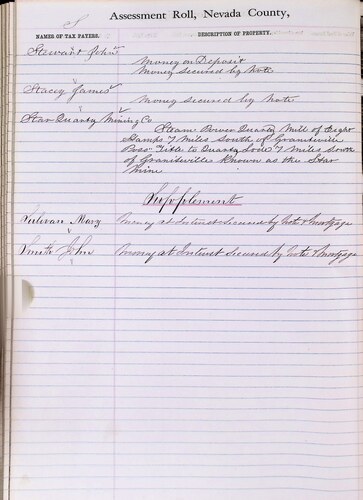 S
Assessment Roll, Nevada County,
NAMES OF TAX PAYERS. DESCRIPTION OF PROPERTY.
Steward John
Money on Deposit
Money secured by Note
Stacey James
Money secured by Note
Star Quartz Mining Co
Steam Power Quartz Mill of Eight
Stamps 7 Miles South of Graniteville
Poss Title to Quartz Lode 7 Miles South
of Graniteville Known as the Star
Mine
Supplements
Sulivan Mary Money at Interest Secured by Note & Mortgage
Smith John Money at Interest Secured by Note & Mortgage